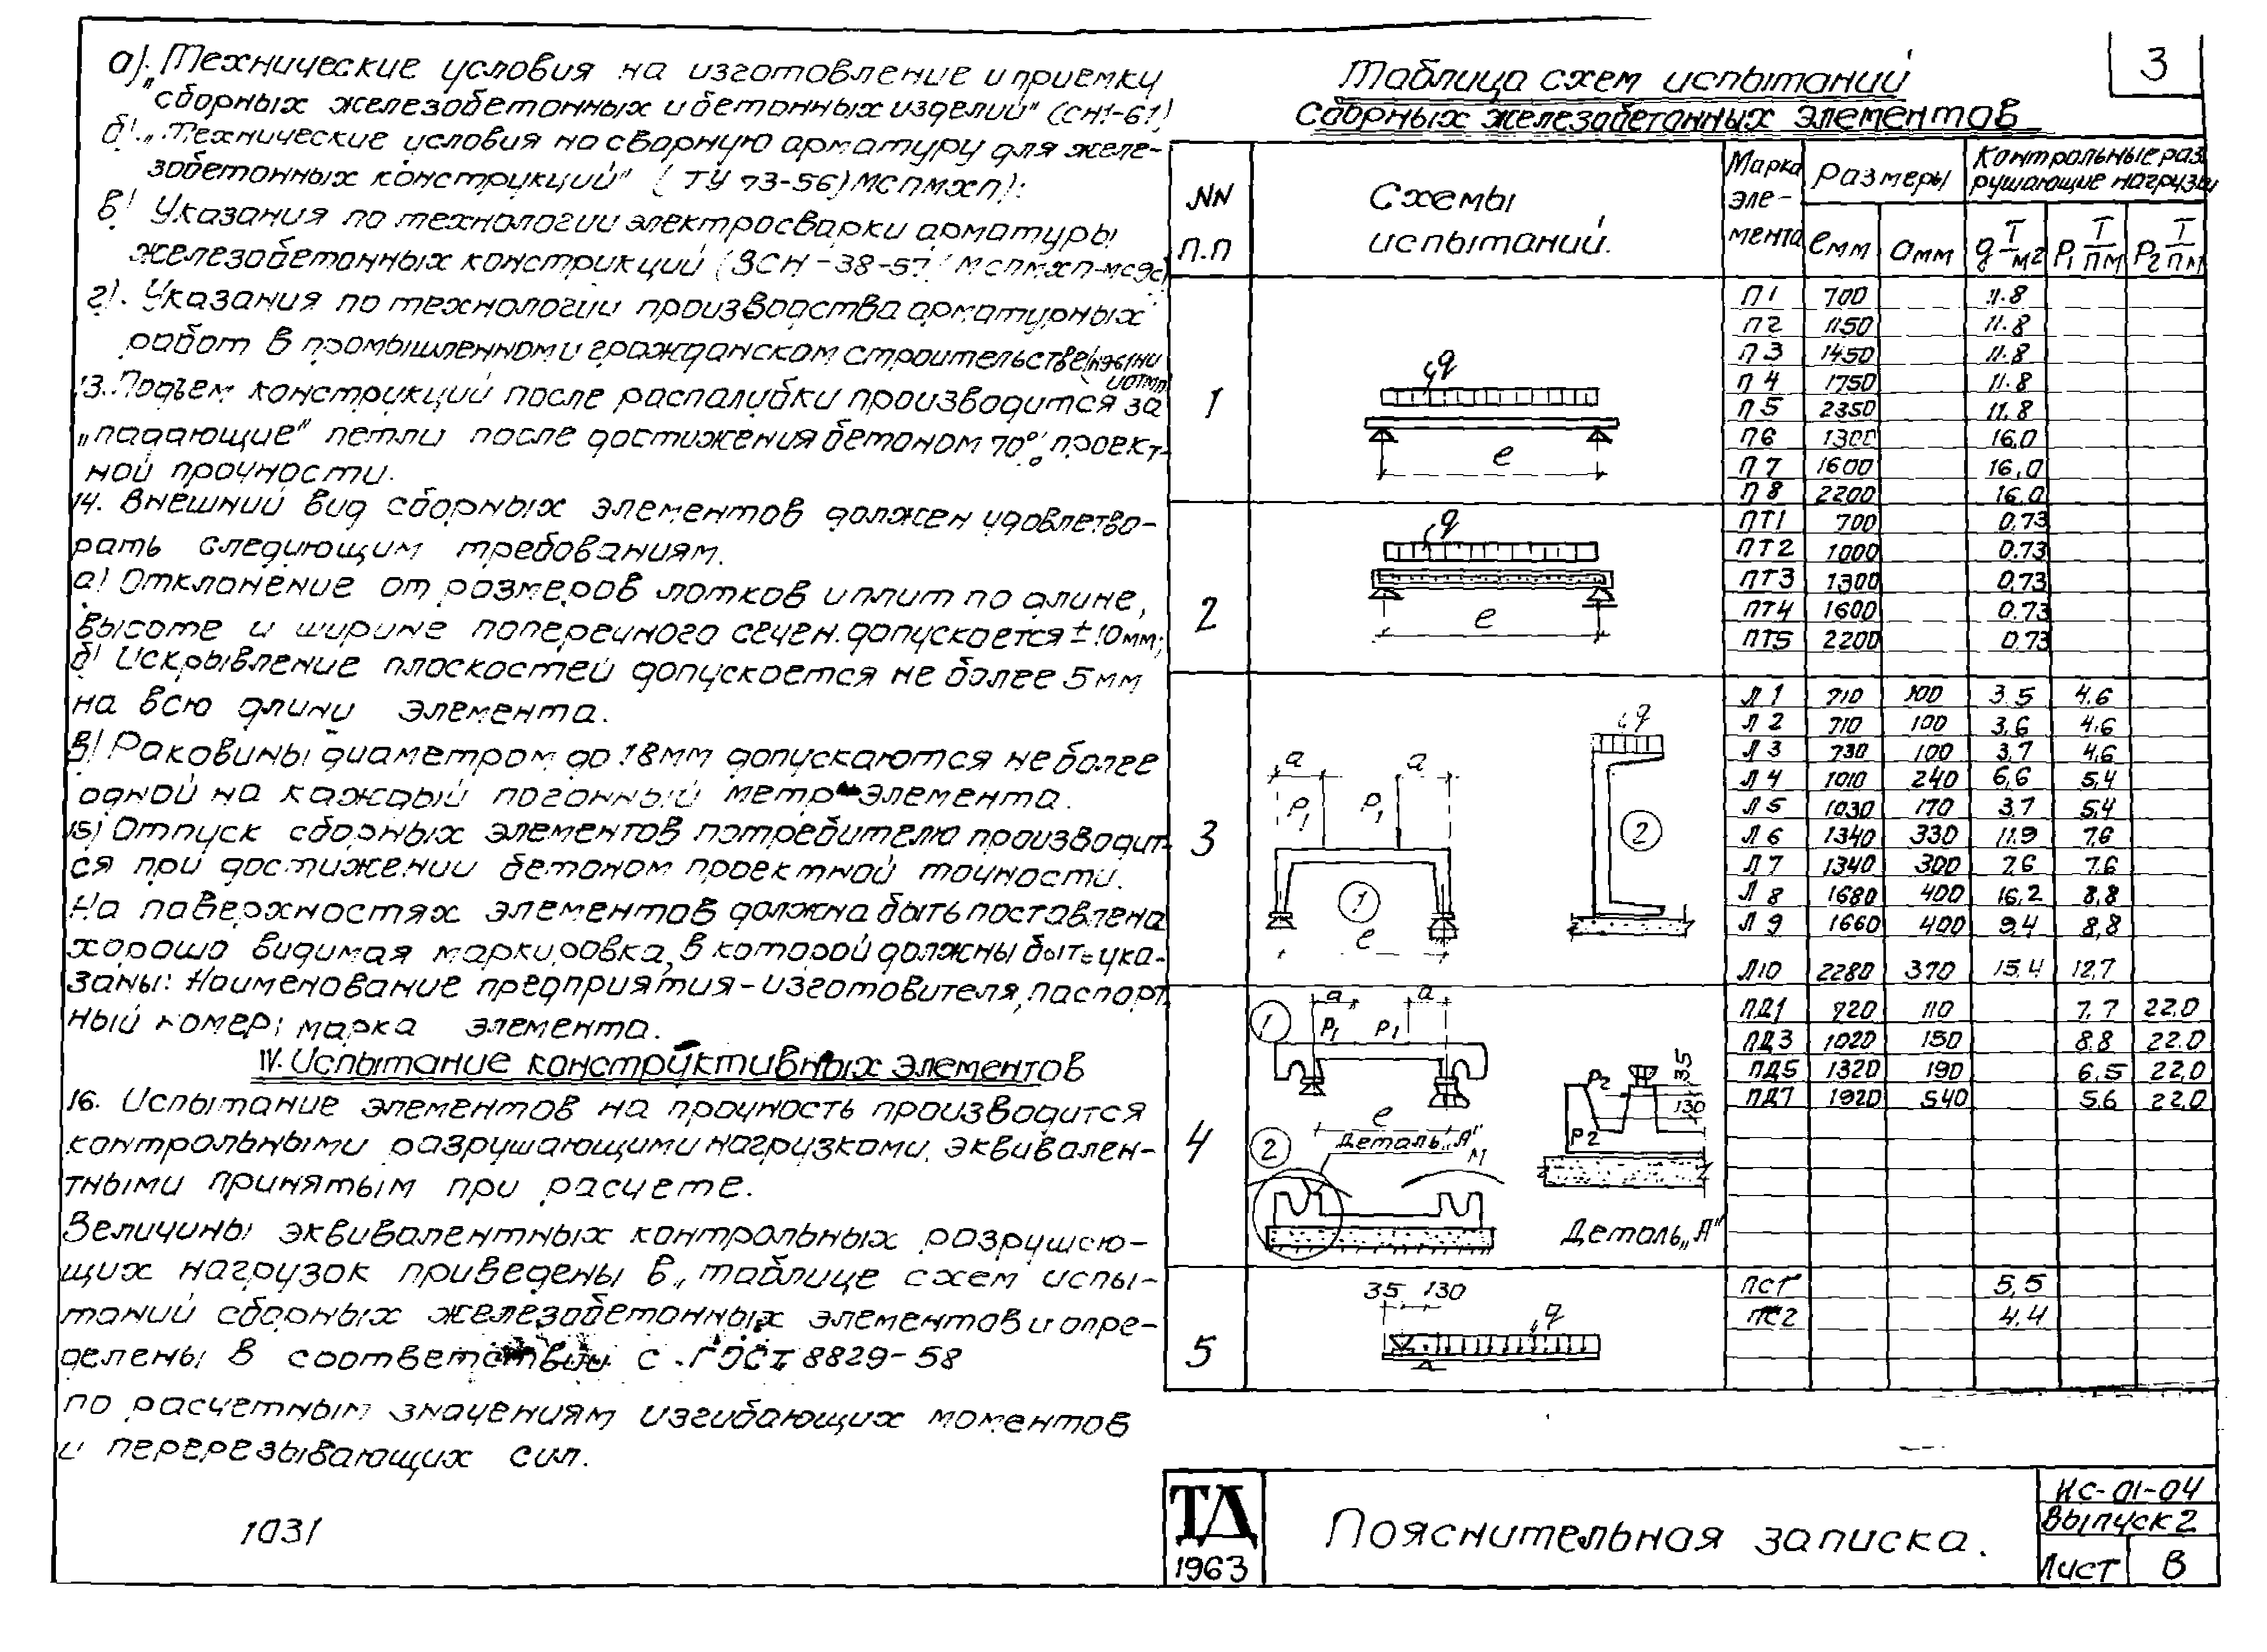 а). „Технические условия на изготовление и приемку
сборных железобетонных и бетонных изделий" (СН1-61)
б). „Технические условия на сварную арматуру для желе-
зобетонных конструкций" (ТУ 73-56) МСПМХП);
в) Указания по технологии электросварки арматуры
железобетонных конструкций (ВСН-38-57/МСПМХП-МСЭС)
г). Указания по технологии производства арматурных
работ в промышленном и гражданском строительстве
13. Подъем конструкций после распалубки производится за
„падающие" петли после достижения бетоном 70% проект-
ной прочности.
14. Внешний вид сборных элементов должен удовлетво-
рать следующим требованиям.
а) Отклонение от размеров лотков и плит по длине,
высоте и ширине поперечного сечен. допускается ±10мм;
б) Искрывление плоскостей допускается не более 5мм
на всю длину элемента.
в) Раковины диаметром до 18мм допускаются не более
одной на каждый погонный метр элемента.
15) Отпуск сборных элементов потребителю производит-
ся при достижении бетоном проектной точности.
На поверхностях элементов должна быть поставлена
хорошо видимая маркировка, в которой должны быть ука-
заны: Наименование предприятия-изготовителя, паспорт
ный номер; марка элемента.
IV. Испытание конструктивных элементов
16. Испытание элементов на прочность производится
контрольными разрушающими нагрузками, эквивален-
тными принятым при расчете.
Величины эквивалентных контрольных разрушаю-
щих нагрузок приведены в „таблице схем испы-
таний сборных железобетонных элементов и опре-
делены в соответствии с ГОСТ 8829-58
по расчетным значениям изгибающих моментов
и перерезывающих сил.
1031
3
Таблица схем испытаний
сборных железобетонных элементов
NN п.п Схемы испытаний. Марка эле-мента Размеры Контрольные раз рушающие нагрузки
ℓмм aмм q Т/м2 P1 Т/пм P2 Т/пм
1
q
ℓ
П1 700 11.8
П2 1150 11.8
П3 1450 11.8
П4 1750 11.8
П5 2350 11.8
П6 1300 16.0
П7 1600 16.0
П8 2200 16.0
2
q
ℓ
ПТ1 700 0.73
ПТ2 1000 0.73
ПТ3 1300 0.73
ПТ4 1600 0.73
ПТ5 2200 0.73
3
a a q
P1 P1
1 2
ℓ
Л1 710 100 3.5 4.6
Л2 710 100 3,6 4.6
Л3 730 100 3.7 4,6
Л4 1010 240 6,6 5,4
Л5 1030 170 3.7 5.4
Л6 1340 330 11.9 7.6
Л7 1340 300 7.6 7.6
Л8 1680 400 16,2 8,8
Л9 1660 400 9,4 8,8
Л10 2280 370 15.4 12.7
4
1 a a
P1 P1
ℓ
2 Деталь „А"
М
P2 35
130
P2
Деталь „А"
ПД1 720 110 7.7 22.0
ПД3 1020 150 8.8 22.0
ПД5 1320 190 6.5 22,0
ПД7 1920 540 5.6 22.0
5
35 130
q
ПС1 5,5
ПС2 4.4
ТД
1963
Пояснительная записка.
ИС-01-04
Выпуск 2
Лист В